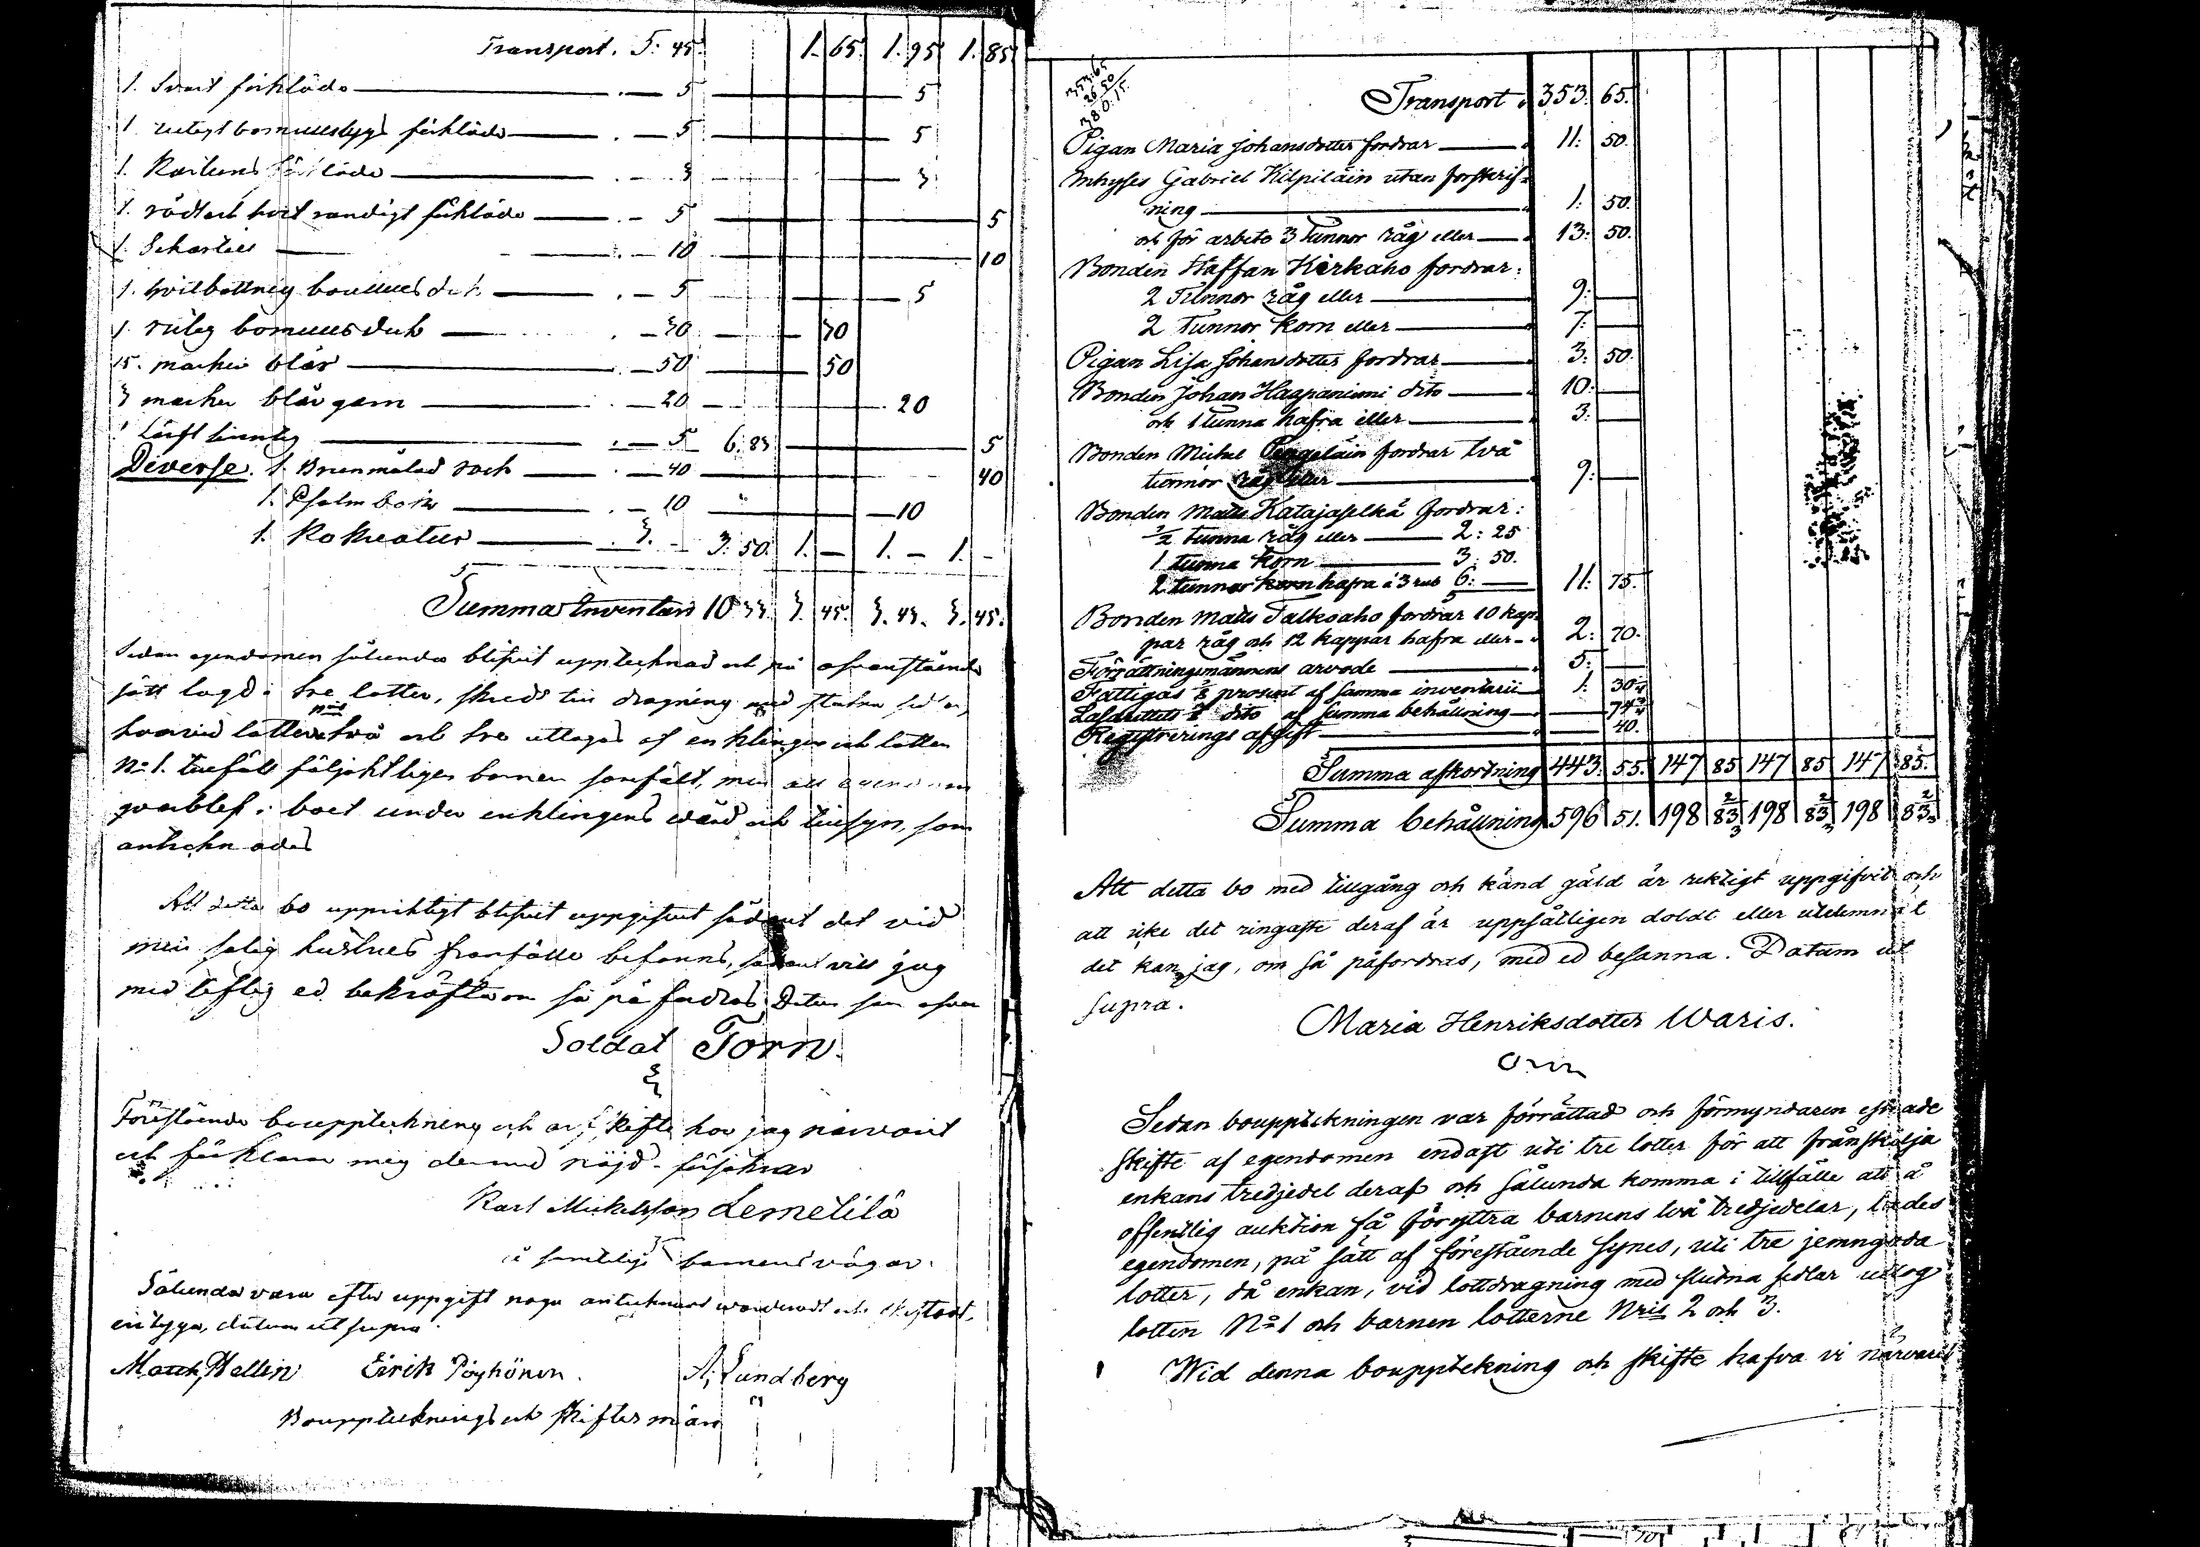 Transport. 5: 45. 1. 65. 1. 95. 1. 85
1. Svart förkläde — . — 5 — 5
1. rutigt bomullstygs förkläde — . — 5 — 5
1. förkläde — . — 3 — 3
1. rödt och hvit randigt förkläde — . — 5 — 5
1. — . — 10 — 10
1. hvitbottnig bomullsduk — . — 5 — 5
1. rutig bomullsduk — . — 70 — 70
15. marker blår — . — 50 — 50
3 marker blårgarn — . — 20 — 20
1 lärft — . — 5 6. 83 — 5
Diverse. 1. Brunmålad rock — . — 40 — 40
1. Psalmbok — . — 10 — 10
1. Kokreatur — 3. — 3: 50. 1. — 1. — 1. —
Summa Inventarii 10 33. 3. 45. 3. 43. 3. 45.
Sedan egendomen sålunda blifvit upptecknad och på ofvanstående
sätt lagd i tre lotter, skreds till dragning med slutna sedlar,
hvarvid lotterne två och tre uttogs af enklingen och lotten
No 1. tillföll följaktligen barnen samfält, men all egendomen
qvarblef i boet under enklingens vård och tillsyn, som
antecknades
Att detta bo uppriktigt blifvit uppgifvit sådant det vid
min salig hustrus frånfälle befanns, sådant vill jag
med liflig ed bekräfta om så påfordras Datum som ofvan
Soldat Torn.
Förestående bouppteckning och arfskifte har jag närvarit
och förklarar mig dermed nöjd försäkrar
Karl Mickelsson Lemetilä
å samtelige barnens vägar.
Sålunda vara efter uppgift noga antecknadt värderadt och skiftadt,
intyga, datum ut supra.
Matth, Hellin Erik Pöyhönen. A, Lundberg
Bouppteknings och skiftes män
353.65
26.50
380.15.
Transport 353. 65.
Pigan Maria Johansdotter fordrar — 11: 50.
Inhyses Gabriel Kilpiläin utan forskrif-
ning — 1. 50.
och för arbete 3 Tunnor råg eller — 13: 50.
Bonden Staffan Kirkaho fordrar:
2 Tunnor råg eller — 9: —
2 Tunnor korn eller — 7: —
Pigan Lisa Johansdotter fordrar — 3: 50.
Bonden Johan Haapaniemi dito — 10: —
och 1 tunna hafra eller — 3: —
Bonden Mickel fordrar två
tunnor råg eller — 9: —
Bonden Matts Katajaselkä fordrar:
1/2 tunna råg eller — 2: 25
1 tunna korn — 3: 50.
2 tunnor korn hafra á 3 rub 6: — 11: 75.
Bonden Matts Talkoaho fordrar 10 kap-
par råg och 12 kappar hafra eller — 2: 70.
Förrättningsmännens arvode — 5: —
Fattigas prosent af summa inventarii — 1. 30
dito af summa behållning — 74
Registrerings afgift — 40.
Summa afkortning 443. 55. 147 85 147 85 147 85.
Summa behållning 596 51. 198 83 2/3 198 83 2/3 198 83 2/3
Att detta bo med tillgång och känd gäld är riktigt uppgifvit och
att icke det ringaste deraf är uppsåtligen doldt eller utelemnat
det kan jag, om så påfordras, med ed besanna. Datum ut
supra.
Maria Henriksdotter Waris.
Sedan bouppteckningen var förrättad och förmyndaren äskade
skifte af egendomen endast uti tre lotter för att frånskilja
enkans tredjedel deraf och sålunda komma i tillfälle att å
offentlig auktion få föryttra barnens två tredjedelar, lades
egendomen, på sätt af förestående synes, uti tre jemngoda
lotter, då enkan, vid lottdragning med slutna sedlar uttog
lotten No 1 och barnen lotterne Nris 2 och 3.
Wid denna bouppteckning och skifte hafva vi närvarit